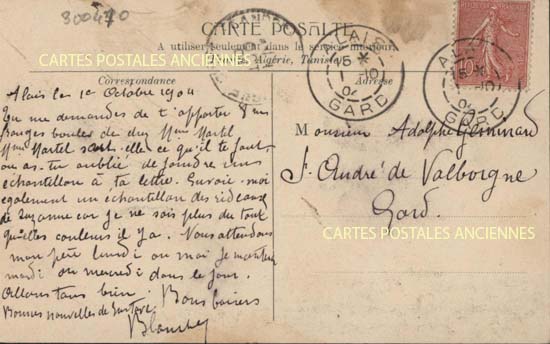 300470
CARTE POSTALE
A utiliser seulement dans le service intérieur
Algérie, Tunisie
CARTES POSTALES ANCIENNES
Correspondance
Adresse
ALAIS
15 *
1 10
04
GARD
ALAIS
GARD
10
Alais le 1er Octobre 1904
Tu me demandes de t'apporter
rouges bouler de chez Mme Martel
Mme Martel sait-elle ce qu'il te faut
ou as-tu oublié de joindre un
échantillon à ta lettre. Envoie-moi
également un échantillon des rideaux
de Suzanne car je ne sais plus du tout
quelles couleurs il y a. Nous attendons
mon père lundi ou moi je monterai
mardi ou mercredi dans le jour.
Allons tous bien. Bons baisers
Bonnes nouvelles de Gustave.
Blanche
Monsieur Adolphe
St André de Valborgne
Gard.
CARTES POSTALES ANCIENNES